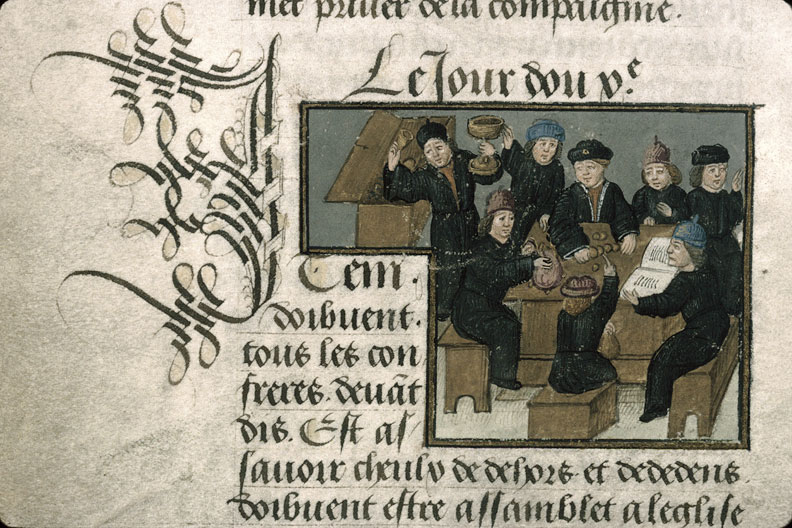 met priuer de la compaignie.
Le Jour dou v.e
Item.
doibuent.
tous les con
freres. deuat
dis. Est as
sauoir cheulx de dehors et de dedens
doibuent estre assamblet a leglise